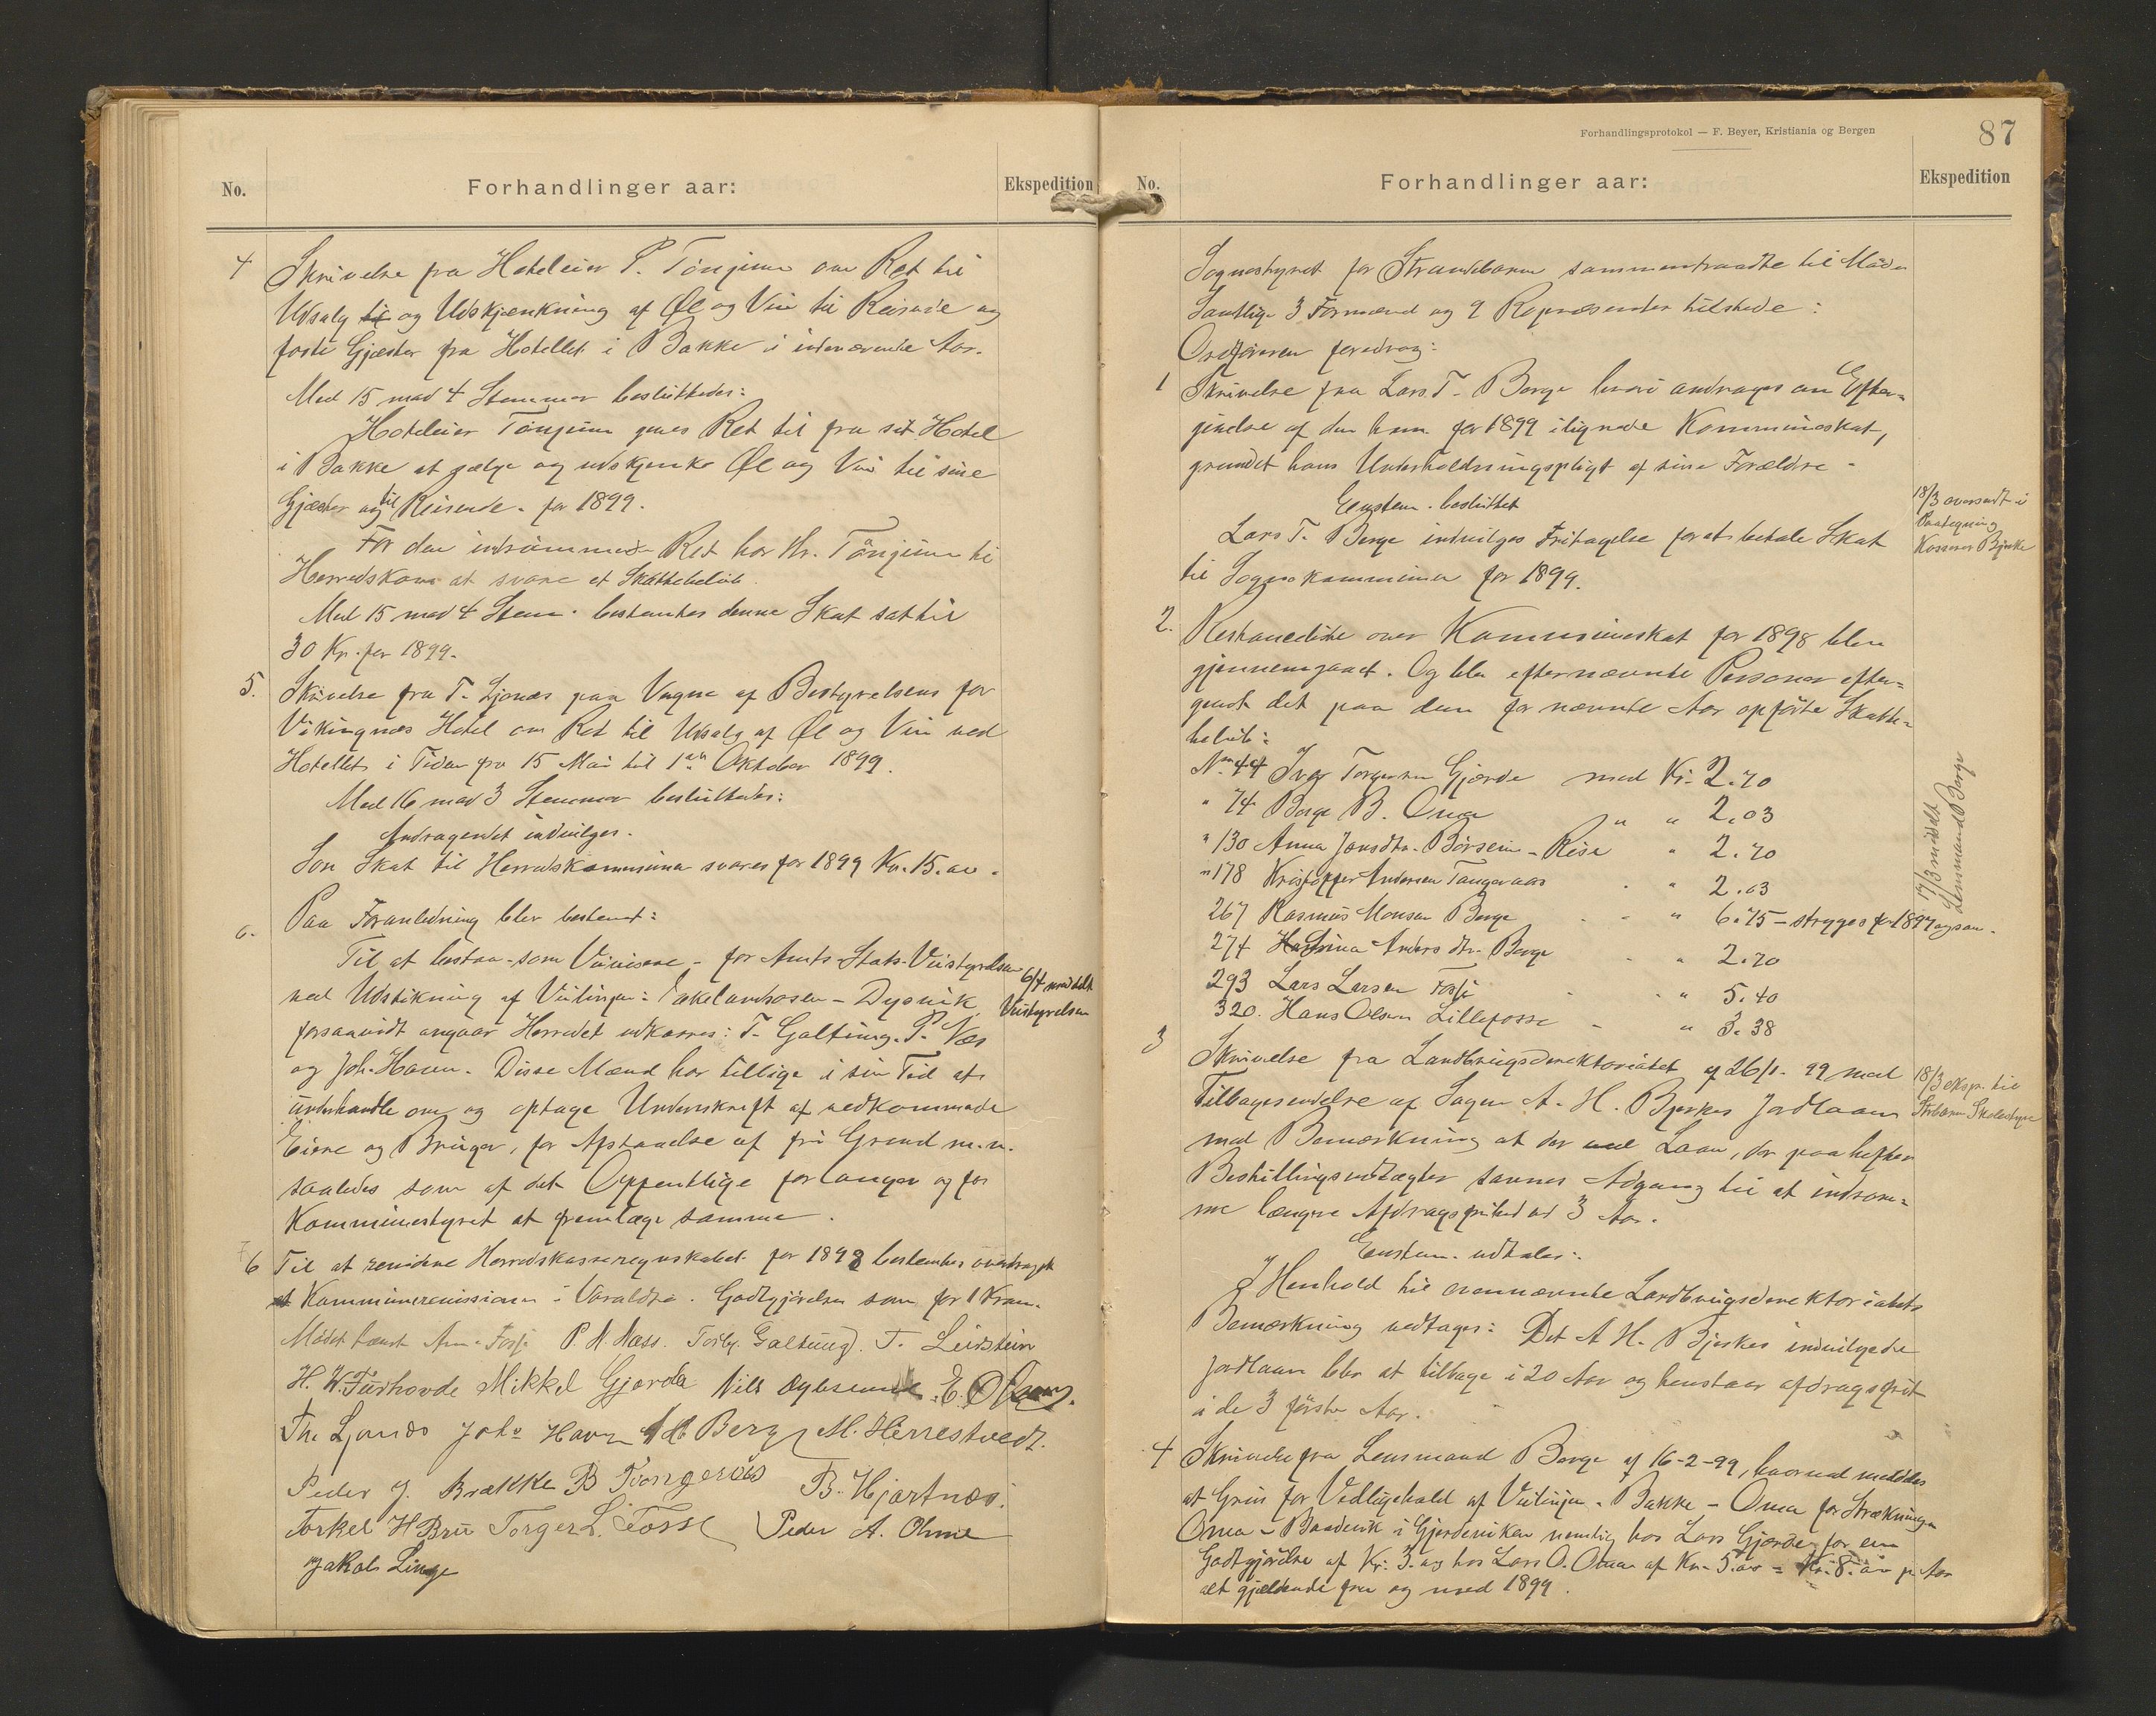 No.
Forhandlinger aar:
Ekspedition
4 Skrivelse fra Hoteleier P. Tönjum om Ret til
Udsalg til og Udskjænkning af Øl og Vin til Reisende og
faste Gjæster fra Hotellet i Bakke i indeværende Aar.
Med 15 mod 4 Stemmer besluttedes:
Hoteleier Tönjum gives Ret til fra sit Hotel
i Bakke at sælge og udskjenke Øl og Vin til sine
Gjæster og til Reisende for 1899.
For den indrömmede Ret har Hr. Tönjum til
Herredskom at svare et Skattebelöb.
Med 15 mod 4 Stem. bestemtes denne Skat sat til
30 Kr. for 1899.
5. Skrivelse fra T. Ljonæs paa Vegne af Bestyrelsens for
Vikingnæs Hotel om Ret til Udsalg af Øl og Vin ved
Hotellet i Tiden fra 15 Mai til 1ste Oktober 1899.
Med 16 mod 3 Stemmer besluttedes:
Andragendet indvilges.
Som Skat til Herredskommunen svares for 1899 Kr. 15.00.
Paa Foranledning blev bestemt:
Til at bistaa som Veivisere for Amts Stats-Veistyrelsen
ved Udstikning af Veilinjen: Ekelandsosen - Dysvik
forsaavidt angaar Herredet udkaares: T. Galtung. P. Næs
og Joh. Haven. Disse Mænd har tillige i sin Tid at
underhandle om og optage Underskrift af vedkommende
Eiere og Bruger, for Afstaaelse af fri Grund m.v.
saaledes som af det Offentlige forlanges og for
Kommunestyret at fremlægge samme.
6/4 meddelt
Veistyrelsen
6 Til at revidere Herredskasseregnskabet for 1898 bestemtes overdraget
Kommunerevisionen i Varaldsö. Godtgjörelse som for 1 Kom.
Mödet hævet Am. Fosse P. N. Næss. Torbj. Galtung. T. Leirstein
H. W. Furhovde Mikkel Gjerde Nils
Th. Ljonæs Johs Haven Berge M. Herrestvedt.
Peder J. Brække B Tvongeroas B. Hjartnæs.
Torkel H Bru Torger L. Fosse Peder A. Ohme
Jakob Linge
Forhandlingsprotokol — F. Beyer, Kristiania og Bergen
87
No.
Forhandlinger aar:
Ekspedition
Sognestyret for Strandebarm sammentraadte til Möde
Samtlige 3 Formænd og 9 Repræsenter tilstede:
Ordföreren foredrog:
1 Skrivelse fra Lars T. Berge hvori andrages om Efter=
givelse af den ham for 1899 ilignede Kommuneskat,
grundet hans Underholdningspligt af sine Forældre.
Enstem. besluttet
Lars T. Berge indvilges Fritagelse for at betale Skat
til Sognekommunen for 1899.
18/3 oversendt i
Paategning
Kasserer Bjerke
2. Restanceliste over Kommuneskat for 1898 blev
gjennemgaaet. Og blev efternævnte Personer efter=
givet det paa dem for nævnte Aar opförte Skatte=
belöb:
No 44 Ivar Torgersen Gjerde med Kr. 2.70
" 74 Børge B. Oma " " 2.03
" 130 Anna Jonsdtr. Börsem - Rise " 2.70
" 178 Kristoffer Andersen Tangeraas " 2.03
267 Rasmus Monsen Berge " 6.75 - stryges for 1897 ogsaa.
274 Andersdtr. Berge " 2.70
293 Lars Larsen Fosse " 5.40
320. Hans Olsen Lillefosse " 3.38
17/3 meddelt
Lensmand Berge
3 Skrivelse fra Landbrugsdirektoriatet af 26/1. 99 med
Tilbagesendelse af Sagen A. H. Bjerkes Jordlaan
med Bemærkning at der ved Laan, der paa hefter
Bestillingsvedtægter savnes Adgang til at indröm=
me længere Afdragsfrihed ad 3 Aar.
18/3 eksp. til
Strbarm Skolestyre
Enstem. udtales:
I Henhold til ovennævnte Landbrugsdirektoriatets
Bemærkning vedtages: Det A. H. Bjerkes indvilgede
Jordlaan blev at tilbage i 20 Aar og henstaar afdragsfrit
i de 3 förste Aar.
4 Skrivelse fra Lensmand Berge af 16-2-99, hvorved meddeles
at Grus for Vedligehold af Veilinjen. Bakke - Oma for Strækningen
Oma - Baadvik i Gjerdeviken nemlig hos Lars Gjerde for en
Godtgjörelse af Kr. 3. og hos Lars O. Oma af Kr. 5.00 = Kr. 8.00 pr. Aar
alt gjældende fra og med 1899.